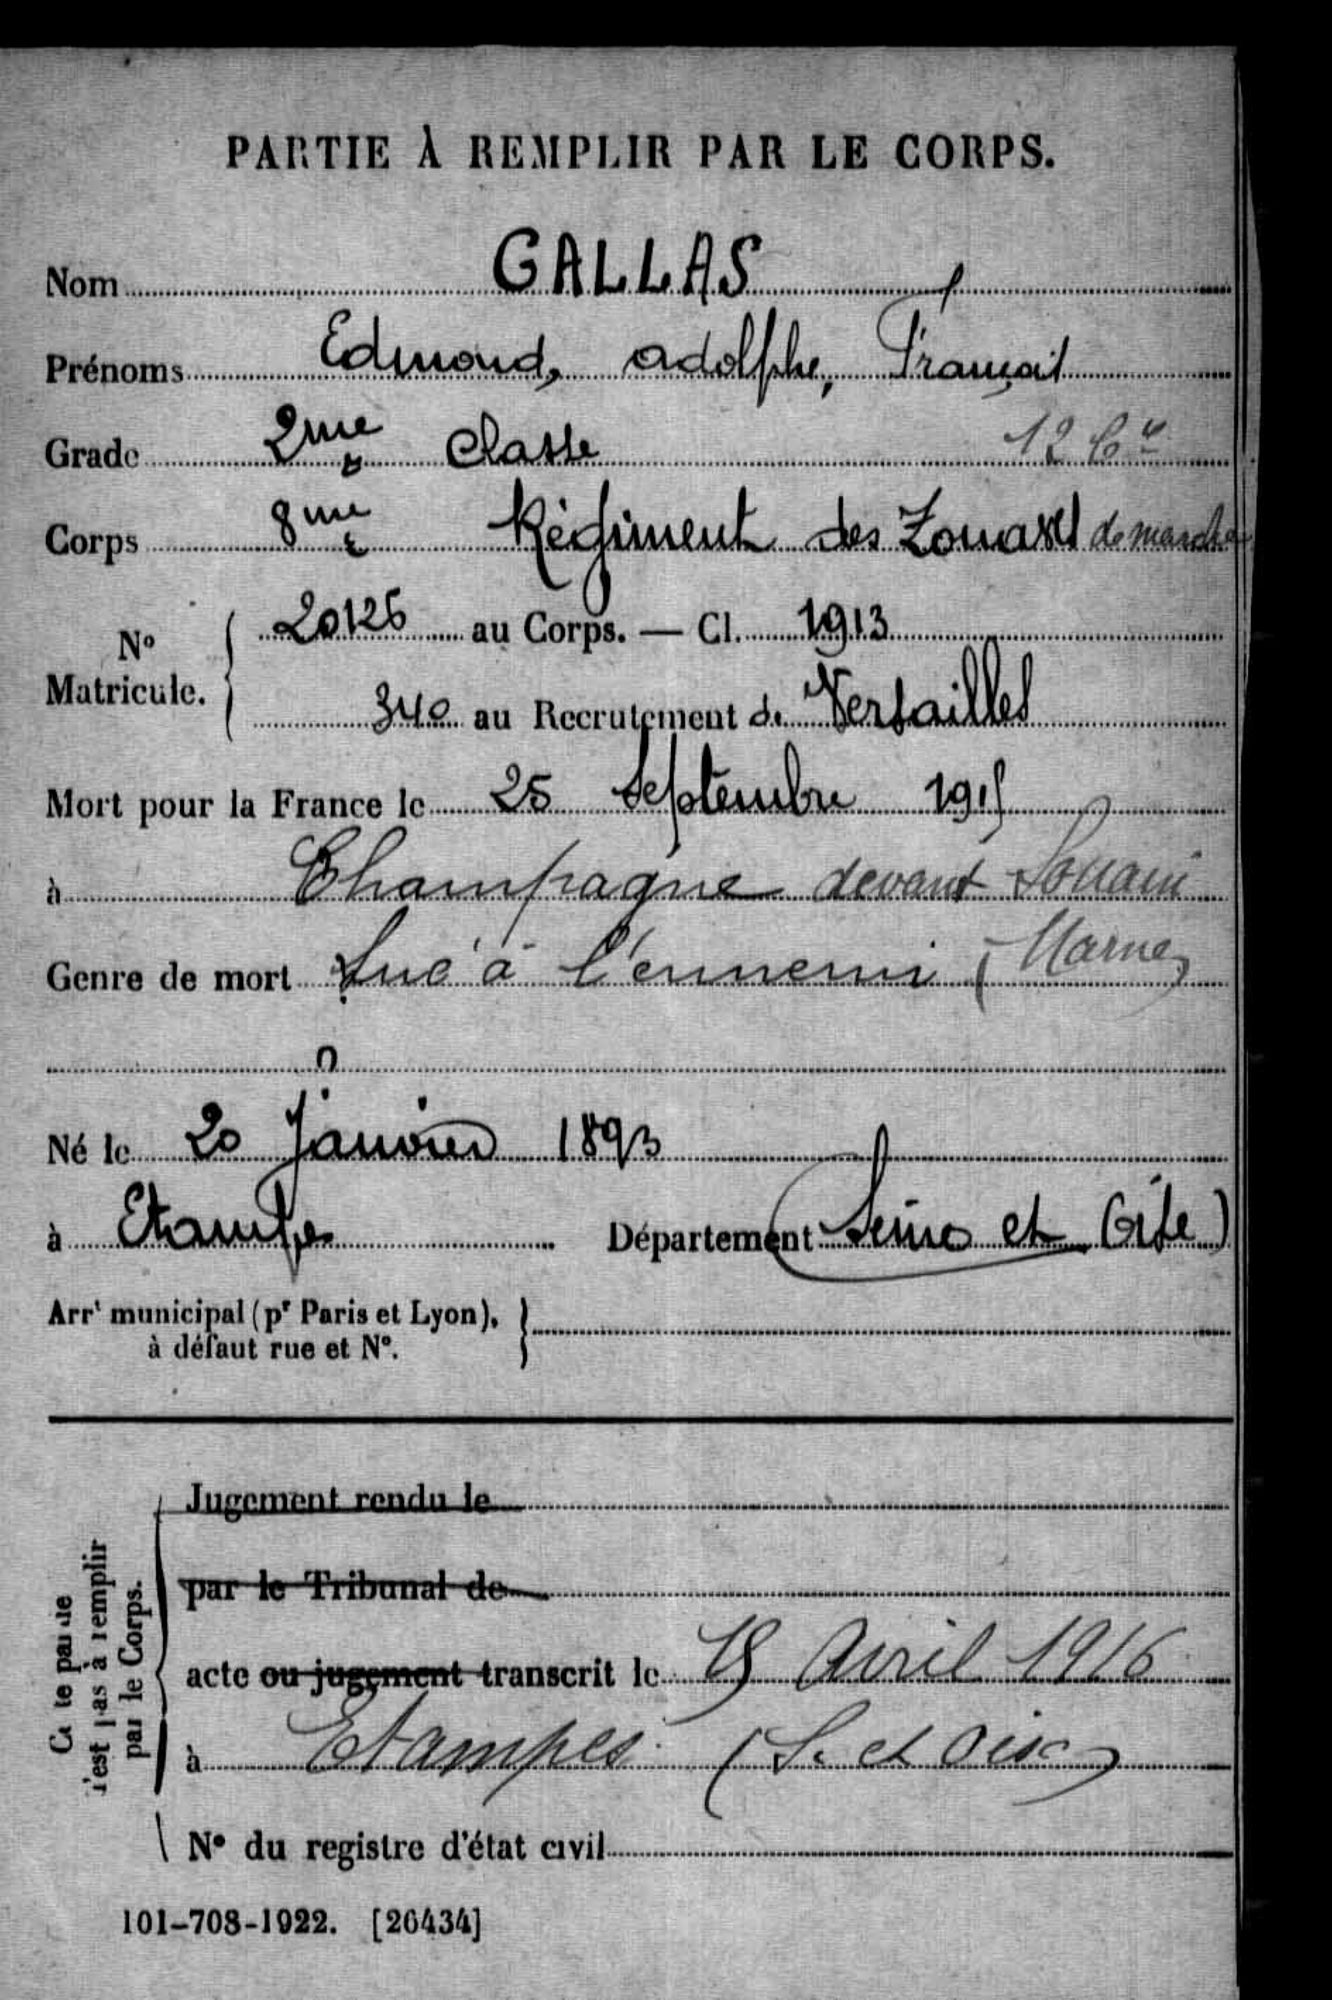 PARTIE À REMPLIR PAR LE CORPS.
Nom GALLAS
Prénoms Edmond, Adolphe, Français
Grade 2me Classe 12 Cie
Corps 8me Régiment des Zouaves de marche
No Matricule. 20126 au Corps. — Cl. 1913
340 au Recrutement de Versailles
Mort pour la France le 25 Septembre 1915
à Champagne devant Souain
Genre de mort Tué à l'ennemi (Marne)
Né le 20 Janvier 1893
à Etampes Département (Seine et Oise)
Arrt municipal (pr Paris et Lyon), à défaut rue et No.
Cette partie n'est pas à remplir par le Corps.
Jugement rendu le
par le Tribunal de
acte ou jugement transcrit le Avril 1916
à Etampes (S. et Oise)
No du registre d'état civil
101-708-1922. [26434]